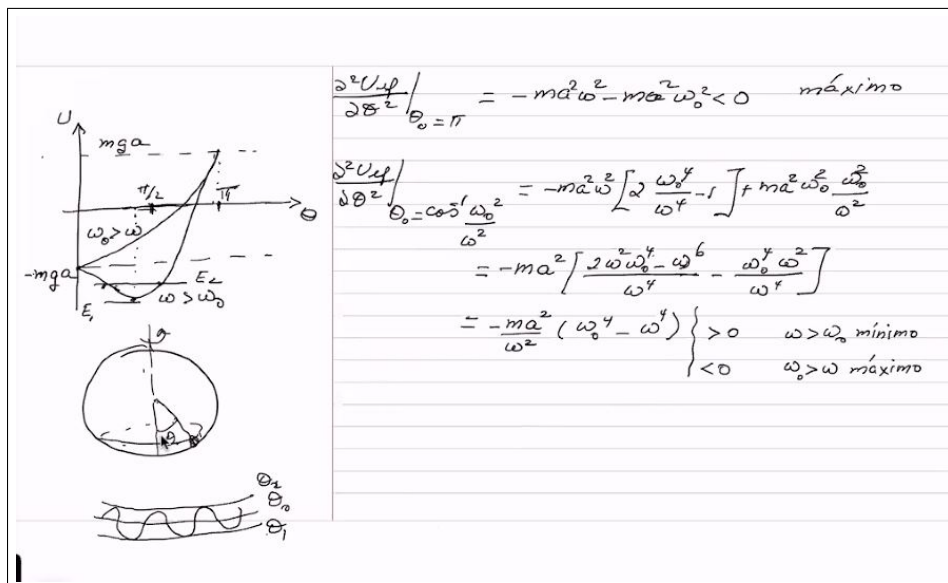 U
mga
π/2
π
θ
ω₀>ω
-mga
E₂
E₁
ω>ω₀
θ
θ₂
θ₀
θ₁
∂²U_ef/∂θ² |θ₀=π = -ma²ω² - ma²ω₀² < 0 máximo
∂²U_ef/∂θ² |θ₀=cos⁻¹ ω₀²/ω² = -ma²ω² [2 ω₀⁴/ω⁴ - 1] + ma²ω₀² ω₀²/ω²
= -ma² [ (2ω²ω₀⁴ - ω⁶)/ω⁴ - ω₀⁴ω²/ω⁴ ]
= -ma²/ω² (ω₀⁴ - ω⁴) { >0 ω>ω₀ mínimo
<0 ω₀>ω máximo